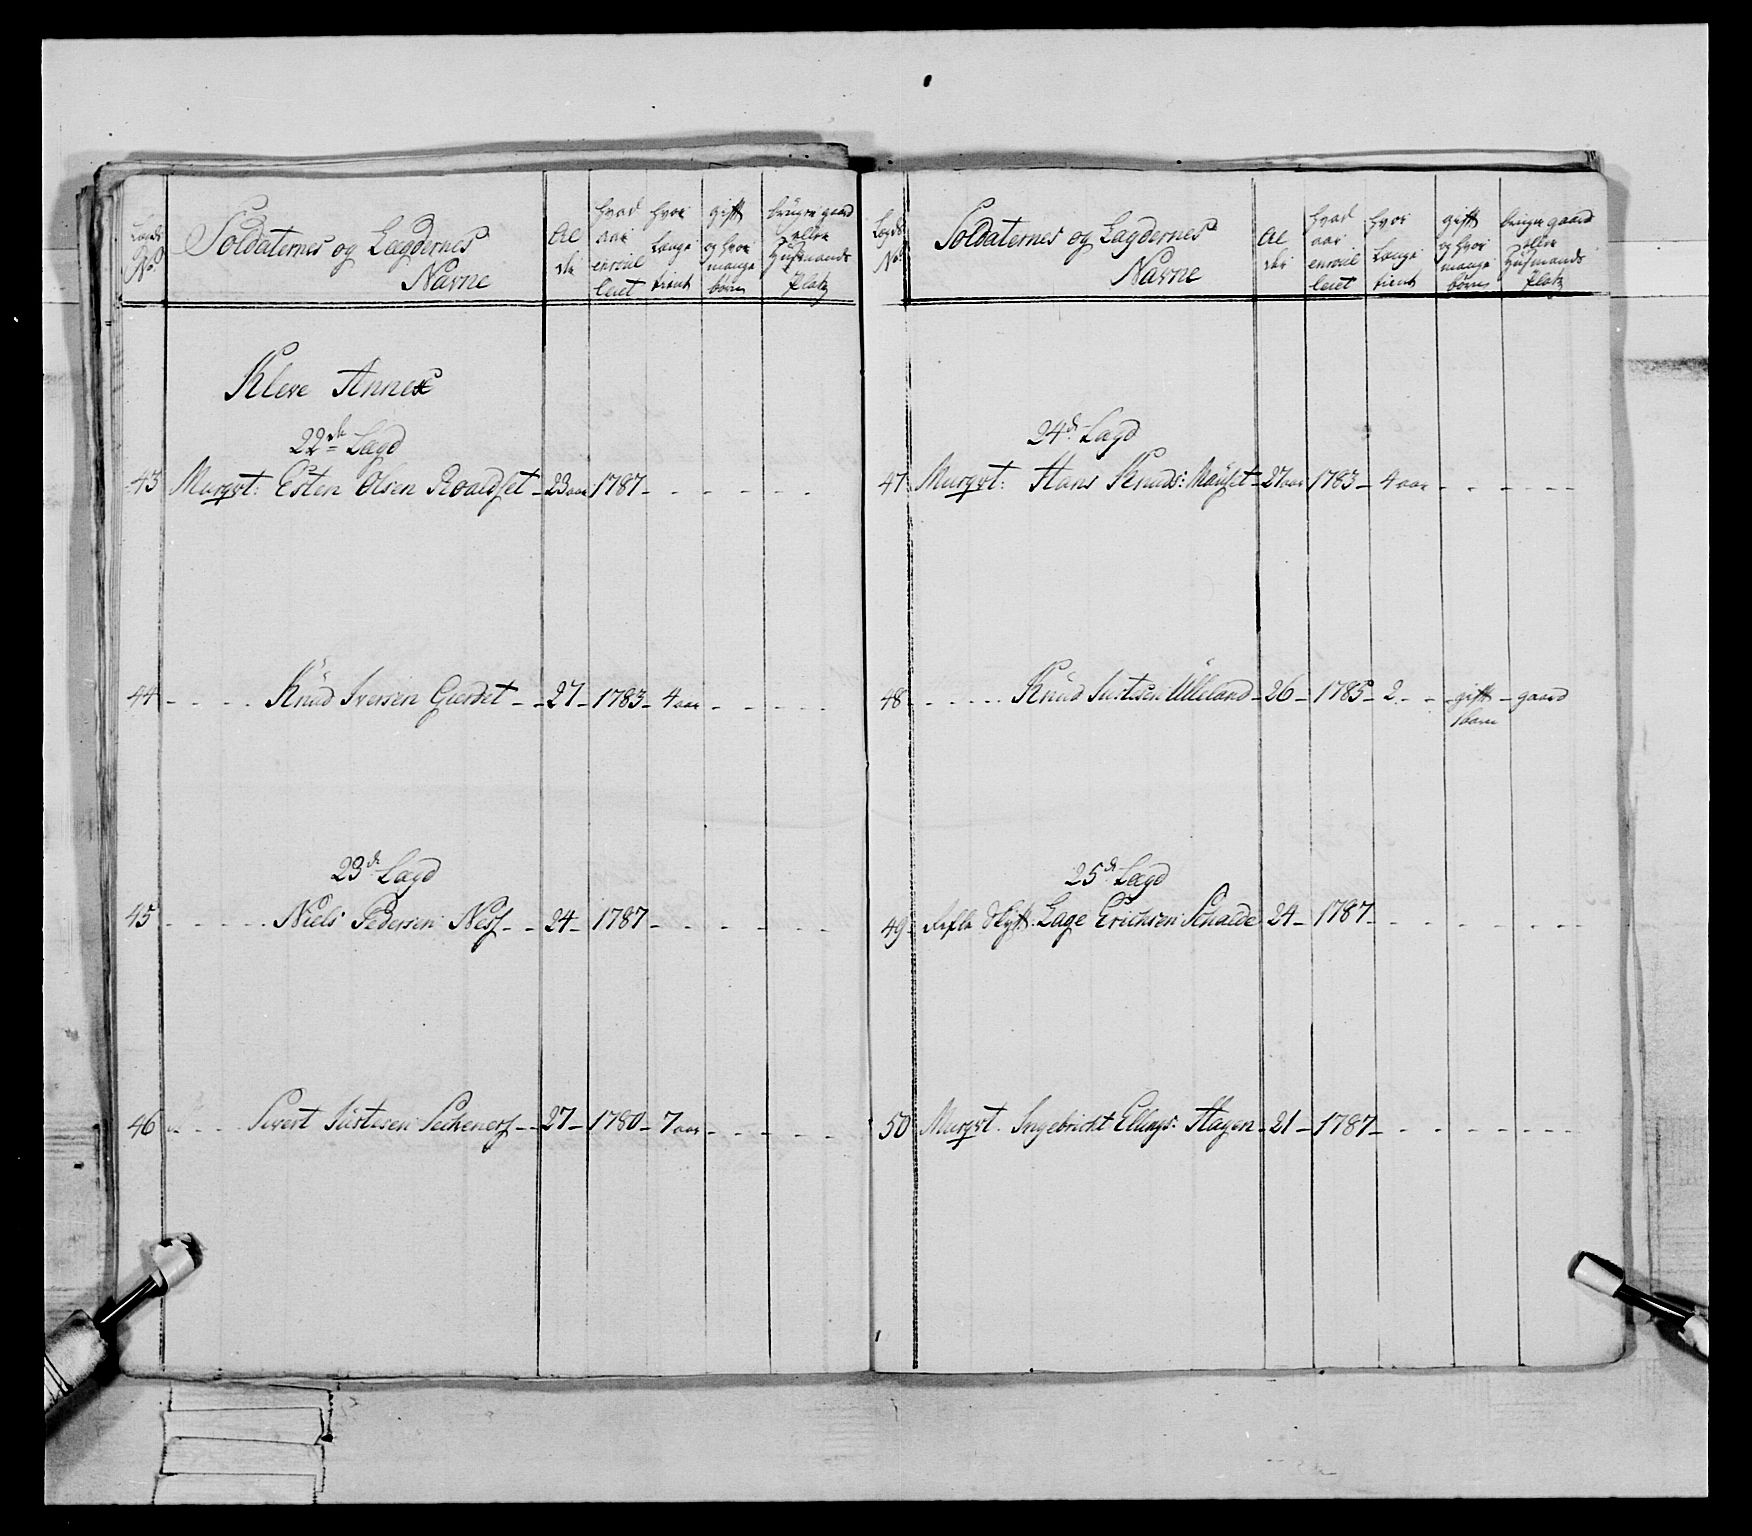 Lægds No
Soldaternes og Lægdernes Navne
Al der
hvad aar enroul leret
hvor længe tient
gift og hvor mange børn
bruger gaard eller Huusmands Platz
Kleve Annex
22de Lægd
43 Murqvt: Esten Olsen Roaldset - 23 aar 1787 - - - - -
44 - - - - Knud Iversen Gierdet - - 27 - 1783 - 4 aar - - - -
23de Lægd
45 - - - - - Niels Pedersen Ness - - 24 - 1787 - - - - -
46 - - - Sivert Justesen - - 27 - 1780 - 7 aar - - - -
Lægds No
Soldaternes og Lægdernes Navne
Al der
hvad aar enroul leret
hvor længe tient
gift og hvor mange børn
bruger gaard eller Huusmands Platz
24de Lægd
47 Murqvt: Hans Knuds: Mauset - 27 aar 1783 - 4 aar - - - - -
48 - - - - - Knud Justsen Ulleland - 26 - 1785 - 2 - - - gift - gaard
1 barn
25de Lægd
49 Rifle Skytt. Lage Erichsen 24 - 1787 - - - - -
50 Murqvt. Ingebricht Ellings: Hagen - 21 - 1787 - - - - -